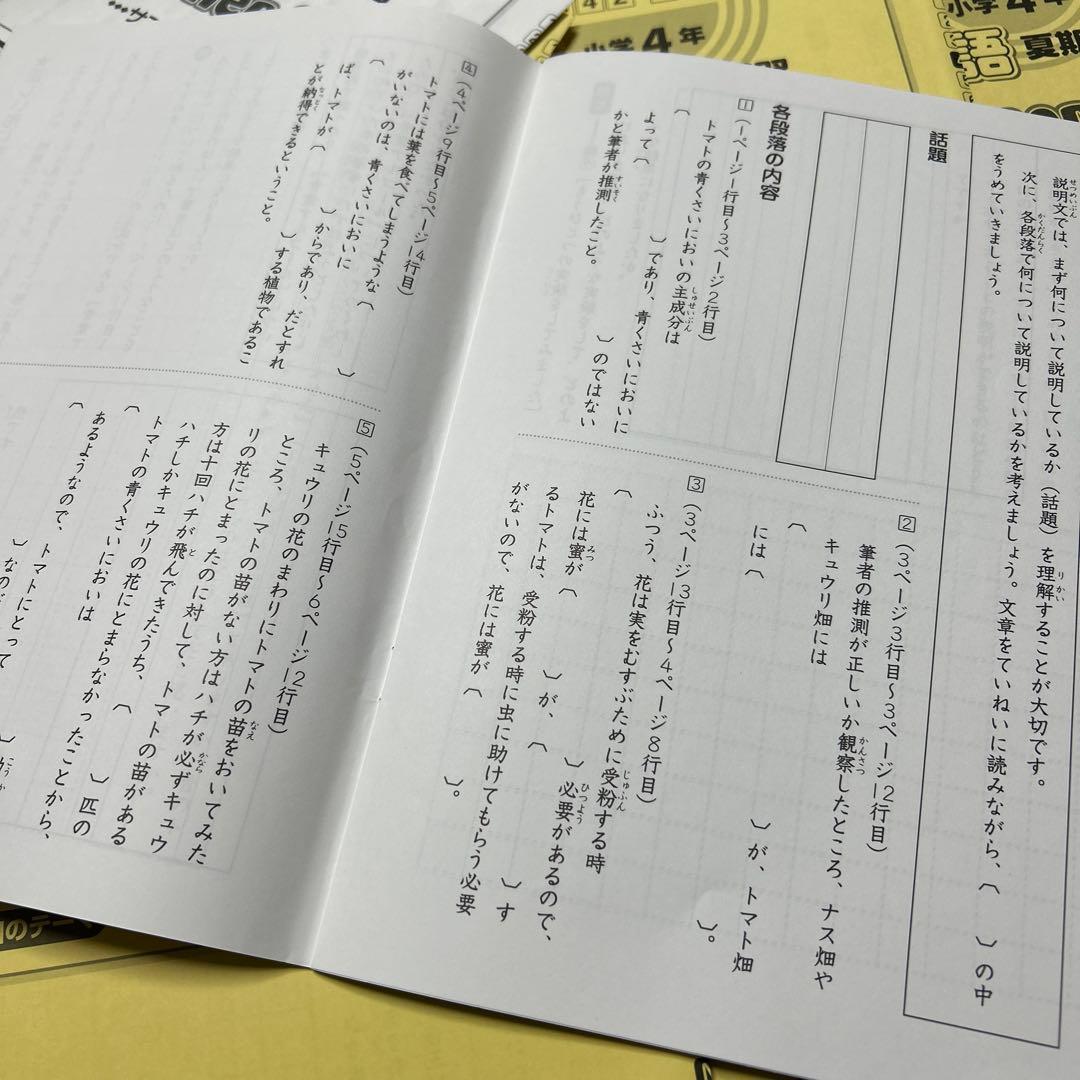 説明文では、まず何について説明しているか（話題）を理解することが大切です。
次に、各段落で何について説明しているかを考えましょう。文章をていねいに読みながら、（　）の中
をうめていきましょう。
話題
各段落の内容
1（1ページ1行目～3ページ2行目）
トマトの青くさいにおいの主成分は
（　）であり、青くさいにおいに
よって（　）のではない
かと筆者が推測したこと。
2（3ページ3行目～3ページ12行目）
筆者の推測が正しいか観察したところ、ナス畑や
キュウリ畑には
（　）が、トマト畑
には（　）。
3（3ページ13行目～4ページ8行目）
ふつう、花は実をむすぶために受粉する時
（　）必要があるので、
花には蜜が（　）が、（　）す
るトマトは、受粉する時に虫に助けてもらう必要
がないので、花には蜜が（　）。
4（4ページ9行目～5ページ14行目）
トマトには葉を食べてしまうような（　）
がいないのは、青くさいにおいに
（　）からであり、だとすれ
ば、トマトが（　）する植物であるこ
とが納得できるということ。
5（5ページ15行目～6ページ12行目）
キュウリの花のまわりにトマトの苗をおいてみた
ところ、トマトの苗がない方はハチが必ずキュウ
リの花にとまったのに対して、トマトの苗がある
方は十回ハチが飛んできたうち、（　）匹の
ハチしかキュウリの花にとまらなかったことから、
トマトの青くさいにおいは
（　）なの
あるようなので、トマトにとって
（　）
小学4年
小学4年
語
夏期